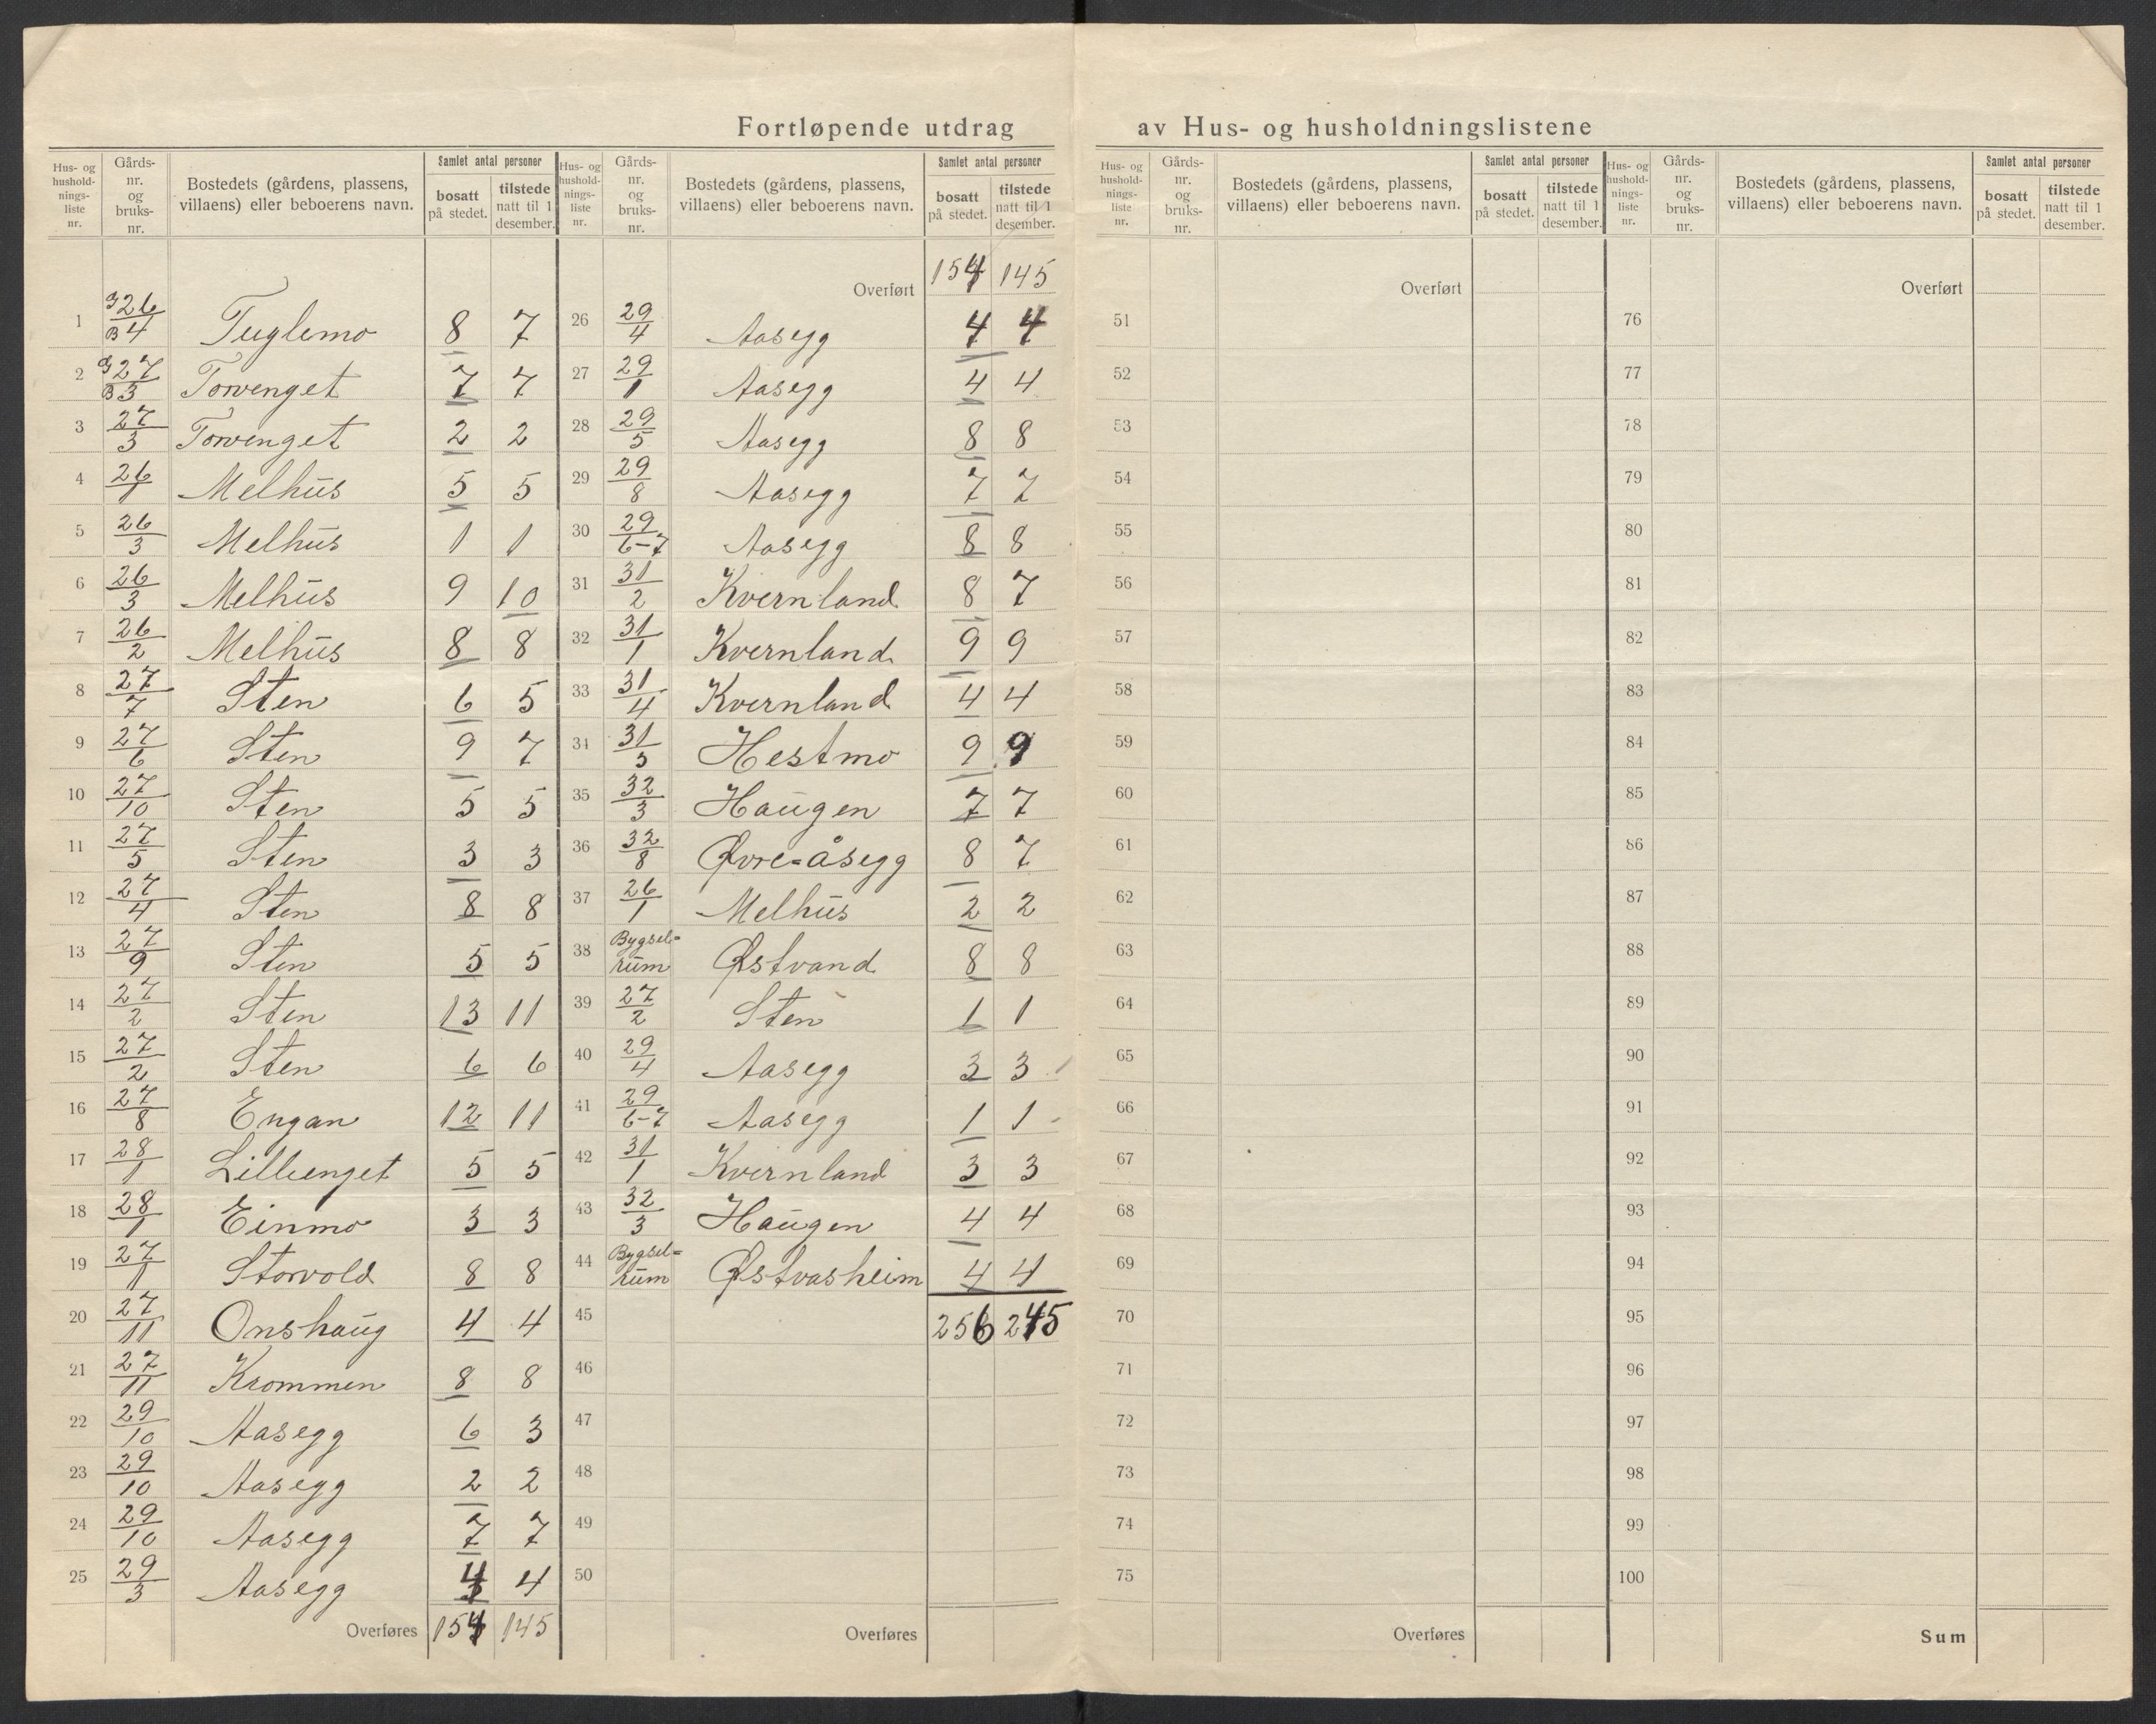 Fortløpende utdrag av Hus- og husholdningslistene
Hus- og hushold- nings- liste nr. | Gårds- nr. og bruks- nr. | Bostedets (gårdens, plassens, villaens) eller beboerens navn. | Samlet antal personer | bosatt på stedet. | tilstede natt til 1 desember.
1 G 26 / B 4 Tuglemo 8 7
2 G 27 / B 3 Torvenget 7 7
3 27/3 Torvenget 2 2
4 26/1 Melhus 5 5
5 26/3 Melhus 1 1
6 26/3 Melhus 9 10
7 26/2 Melhus 8 8
8 27/7 Sten 6 5
9 27/6 Sten 9 7
10 27/10 Sten 5 5
11 27/5 Sten 3 3
12 27/4 Sten 8 8
13 27/9 Sten 5 5
14 27/2 Sten 13 11
15 27/2 Sten 6 6
16 27/8 Engan 12 11
17 28/1 Lillienget 5 5
18 28/1 Einmo 3 3
19 27/1 Storvold 8 8
20 27/11 Onshaug 4 4
21 27/11 Krommen 8 8
22 29/10 Aasegg 6 3
23 29/10 Aasegg 2 2
24 29/10 Aasegg 7 7
25 29/3 Aasegg 4 4
Overføres 154 145
Hus- og hushold- nings- liste nr. | Gårds- nr. og bruks- nr. | Bostedets (gårdens, plassens, villaens) eller beboerens navn. | Samlet antal personer | bosatt på stedet. | tilstede natt til 1 desember.
Overført 154 145
26 29/4 Aasegg 4 4
27 29/1 Aasegg 4 4
28 29/5 Aasegg 8 8
29 29/8 Aasegg 7 7
30 29/6-7 Aasegg 8 8
31 31/2 Kvernland 8 7
32 31/1 Kvernland 9 9
33 31/4 Kvernland 4 4
34 31/3 Hestmo 9 9
35 32/3 Haugen 7 7
36 32/8 Øvre=åsegg 8 7
37 26/1 Melhus 2 2
38 Bygsel= rum Østvand 8 8
39 27/2 Sten 1 1
40 29/4 Aasegg 3 3
41 29/6-7 Aasegg 1 1
42 31/1 Kvernland 3 3
43 32/3 Haugen 4 4
44 Bygsel= rum Østvasheim 4 4
45 256 245
46
47
48
49
50
Overføres
Hus- og hushold- nings- liste nr. | Gårds- nr. og bruks- nr. | Bostedets (gårdens, plassens, villaens) eller beboerens navn. | Samlet antal personer | bosatt på stedet. | tilstede natt til 1 desember.
Overført
51
52
53
54
55
56
57
58
59
60
61
62
63
64
65
66
67
68
69
70
71
72
73
74
75
Overføres
Hus- og hushold- nings- liste nr. | Gårds- nr. og bruks- nr. | Bostedets (gårdens, plassens, villaens) eller beboerens navn. | Samlet antal personer | bosatt på stedet. | tilstede natt til 1 desember.
Overført
76
77
78
79
80
81
82
83
84
85
86
87
88
89
90
91
92
93
94
95
96
97
98
99
100
Sum